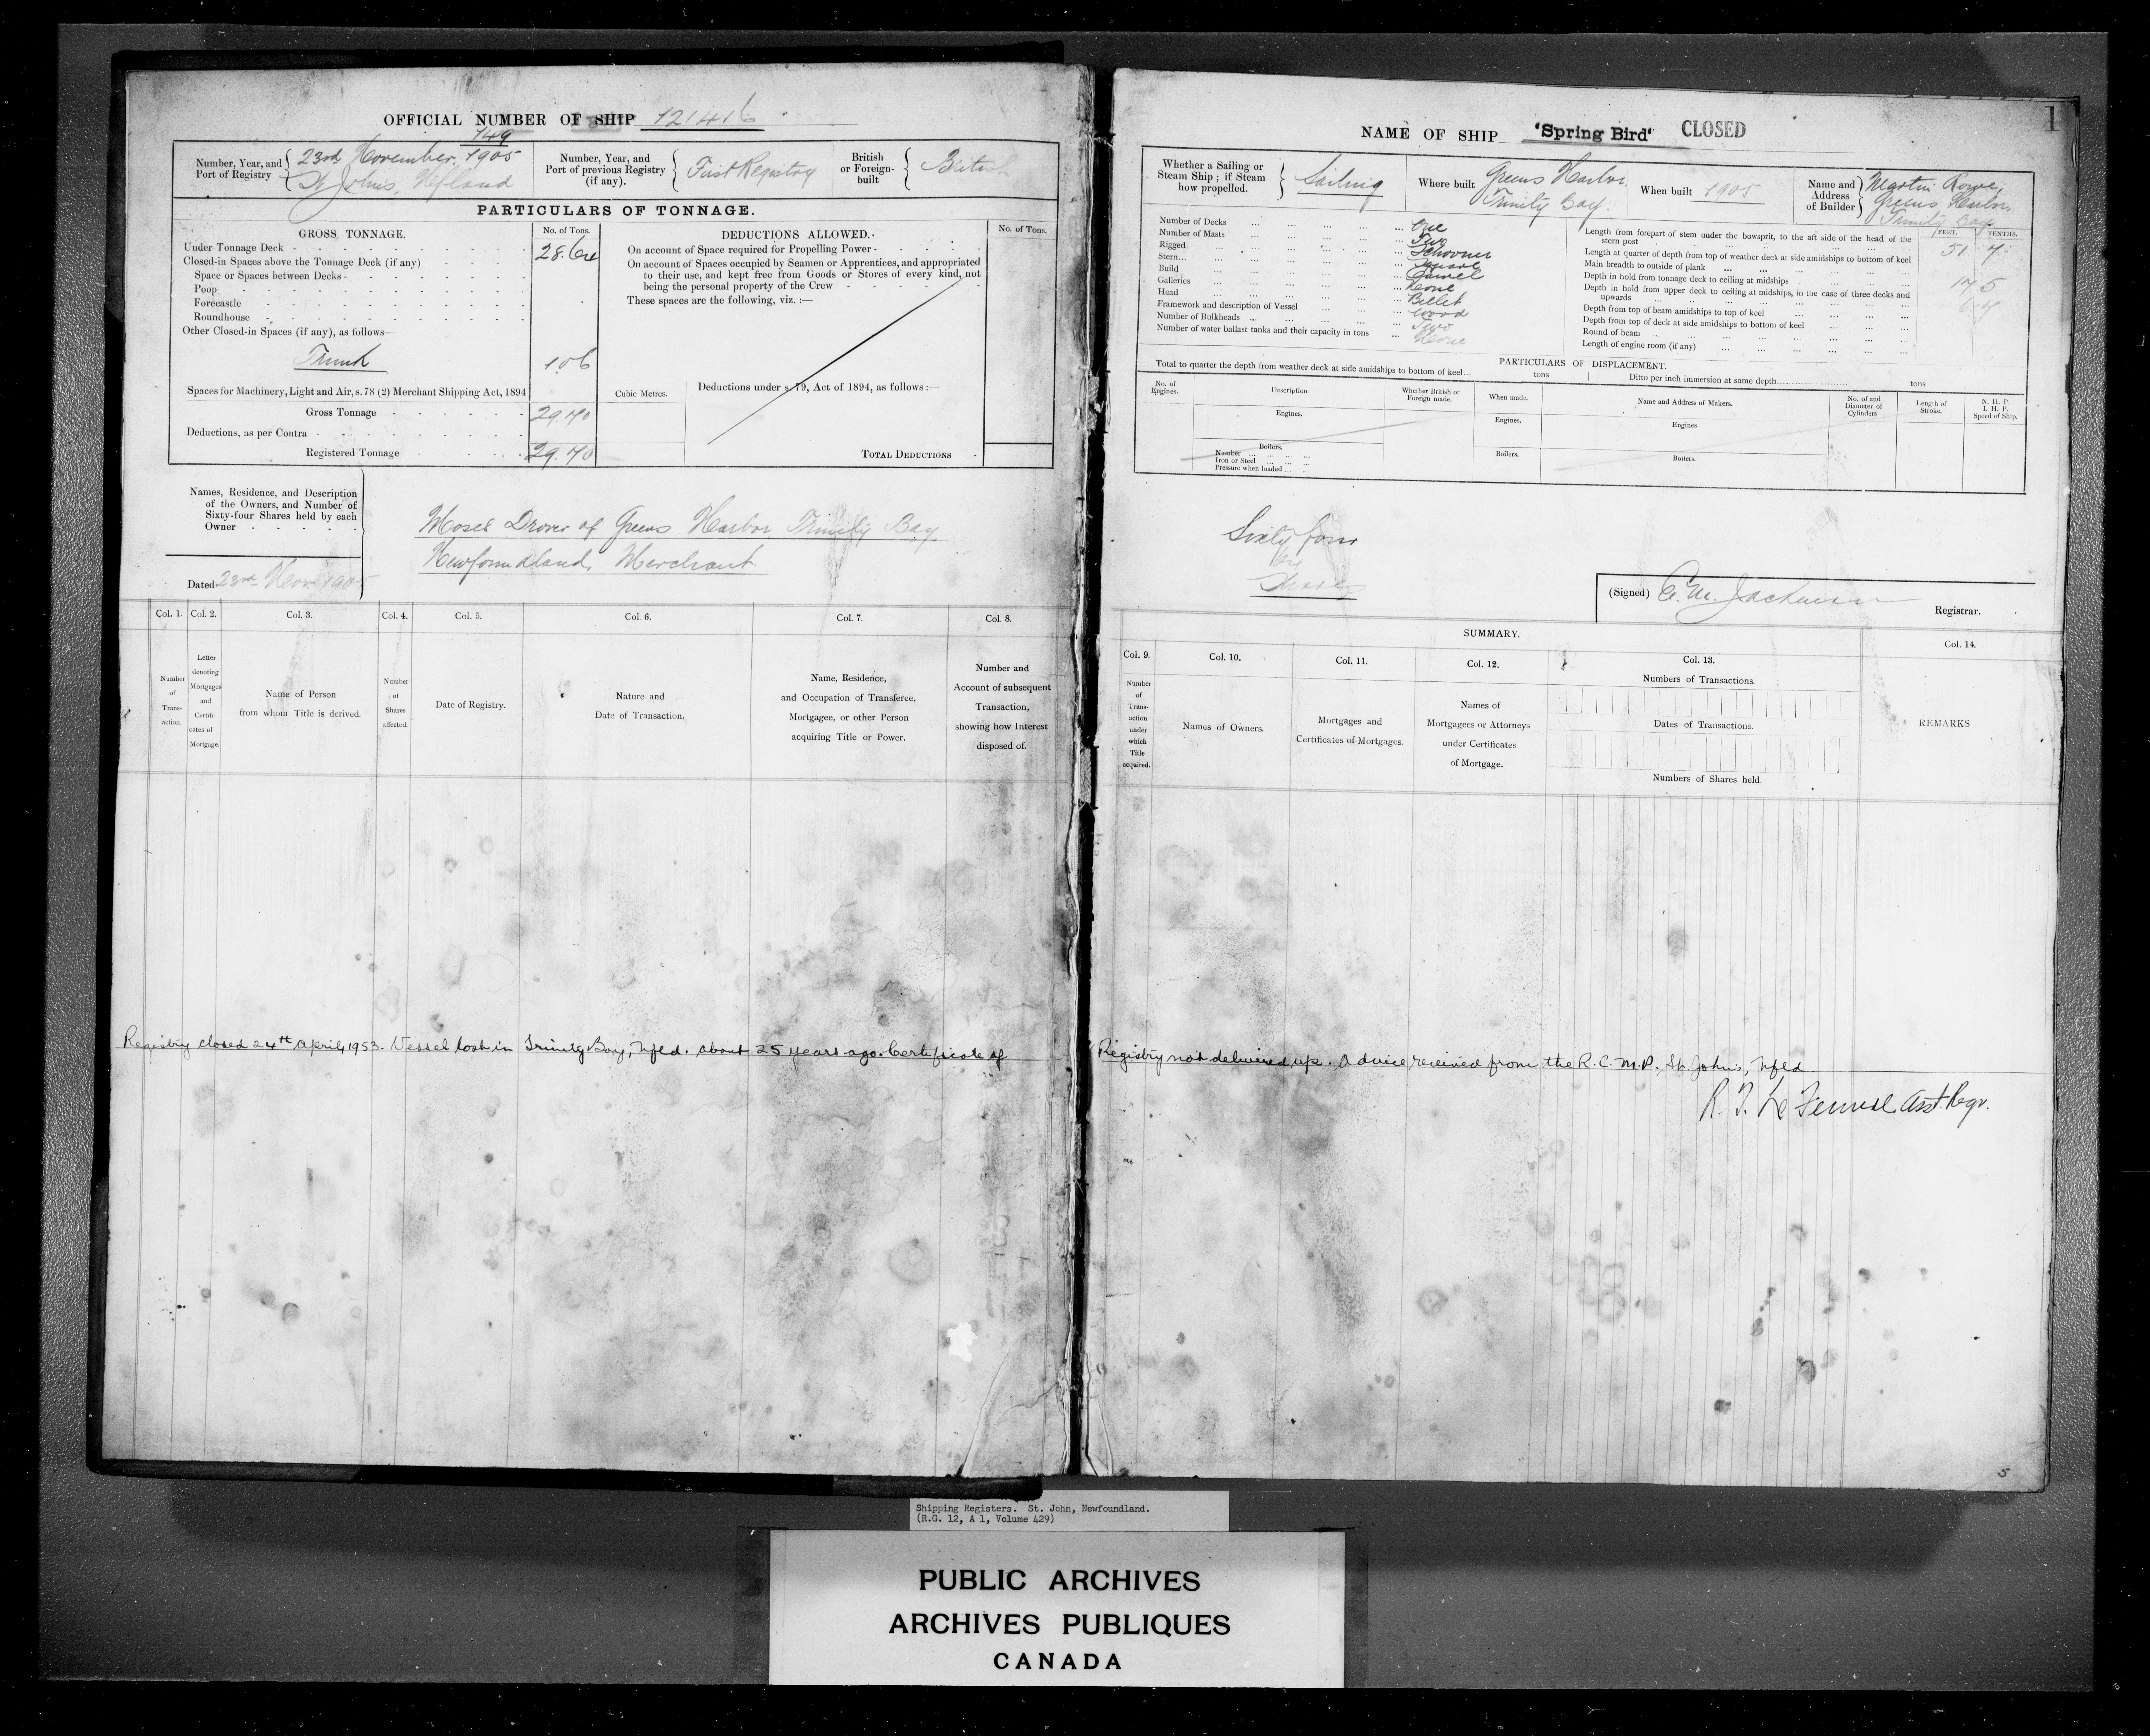 OFFICIAL NUMBER OF SHIP 121416
Number, Year, and Port of Registry
149
23rd November, 1905
St Johns, Nfland
Number, Year, and Port of previous Registry (if any).
First Registry
British or Foreign-built
British
PARTICULARS OF TONNAGE.
GROSS TONNAGE.
No. of Tons.
Under Tonnage Deck 28.64
Closed-in Spaces above the Tonnage Deck (if any)
Space or Spaces between Decks
Poop
Forecastle
Roundhouse
Other Closed-in Spaces (if any), as follows—
Trunk 1.06
Spaces for Machinery, Light and Air, s. 78 (2) Merchant Shipping Act, 1894
Gross Tonnage 29.70
Deductions, as per Contra
Registered Tonnage 29.70
Cubic Metres.
DEDUCTIONS ALLOWED.
No. of Tons.
On account of Space required for Propelling Power
On account of Spaces occupied by Seamen or Apprentices, and appropriated
to their use, and kept free from Goods or Stores of every kind, not
being the personal property of the Crew
These spaces are the following, viz. :—
Deductions under s. 79, Act of 1894, as follows :—
TOTAL DEDUCTIONS
Names, Residence, and Description
of the Owners, and Number of
Sixty-four Shares held by each
Owner
Moses Drover of Greens Harbor Trinity Bay
Newfoundland, Merchant
Dated 23rd Nov 1905
Col. 1.
Number of Trans-action.
Col. 2.
Letter denoting Mortgages and Certifi-cates of Mortgage.
Col. 3.
Name of Person
from whom Title is derived.
Col. 4.
Number of Shares affected.
Col. 5.
Date of Registry.
Col. 6.
Nature and
Date of Transaction.
Col. 7.
Name, Residence,
and Occupation of Transferee,
Mortgagee, or other Person
acquiring Title or Power.
Col. 8.
Number and
Account of subsequent
Transaction,
showing how Interest
disposed of.
Registry closed 24th April, 1953. Vessel lost in Trinity Bay, Nfld. about 25 years ago. Certificate of
1
NAME OF SHIP "Spring Bird" CLOSED
Whether a Sailing or
Steam Ship ; if Steam
how propelled.
Sailing
Where built
Greens Harbor
Trinity Bay.
When built 1905
Name and
Address
of Builder
Martin Rowe,
Greens Harbor,
Trinity Bay
Number of Decks One
Number of Masts Two
Rigged Schooner
Stern Square
Build Carvel
Galleries None
Head Billet
Framework and description of Vessel Wood
Number of Bulkheads Two
Number of water ballast tanks and their capacity in tons None
FEET. TENTHS.
Length from forepart of stem under the bowsprit, to the aft side of the head of the
stern post 51 7
Length at quarter of depth from top of weather deck at side amidships to bottom of keel
Main breadth to outside of plank 17 5
Depth in hold from tonnage deck to ceiling at midships
Depth in hold from upper deck to ceiling at midships, in the case of three decks and
upwards
Depth from top of beam amidships to top of keel
Depth from top of deck at side amidships to bottom of keel
Round of beam
Length of engine room (if any)
PARTICULARS OF DISPLACEMENT.
Total to quarter the depth from weather deck at side amidships to bottom of keel... tons
Ditto per inch immersion at same depth tons
No. of Engines.
Description
Whether British or Foreign made.
When made.
Name and Address of Makers.
No. of and Diameter of Cylinders
Length of Stroke.
N. H. P.
I. H. P.
Speed of Ship.
Engines.
Engines.
Engines
Boilers.
Number
Iron or Steel
Pressure when loaded
Boilers.
Boilers.
Sixty four
Shares
(Signed) Registrar.
SUMMARY.
Col. 9.
Number of Trans-action under which Title acquired.
Col. 10.
Names of Owners.
Col. 11.
Mortgages and
Certificates of Mortgages.
Col. 12.
Names of
Mortgagees or Attorneys
under Certificates
of Mortgage.
Col. 13.
Numbers of Transactions.
Dates of Transactions.
Numbers of Shares held.
Col. 14.
REMARKS
Registry not delivered up. Advice received from the R.C.M.P., St. John's, Nfld.
Asst. Regr.
5
Shipping Registers. St. John, Newfoundland.
(R.G. 12, A 1, Volume 429)
PUBLIC ARCHIVES
ARCHIVES PUBLIQUES
CANADA